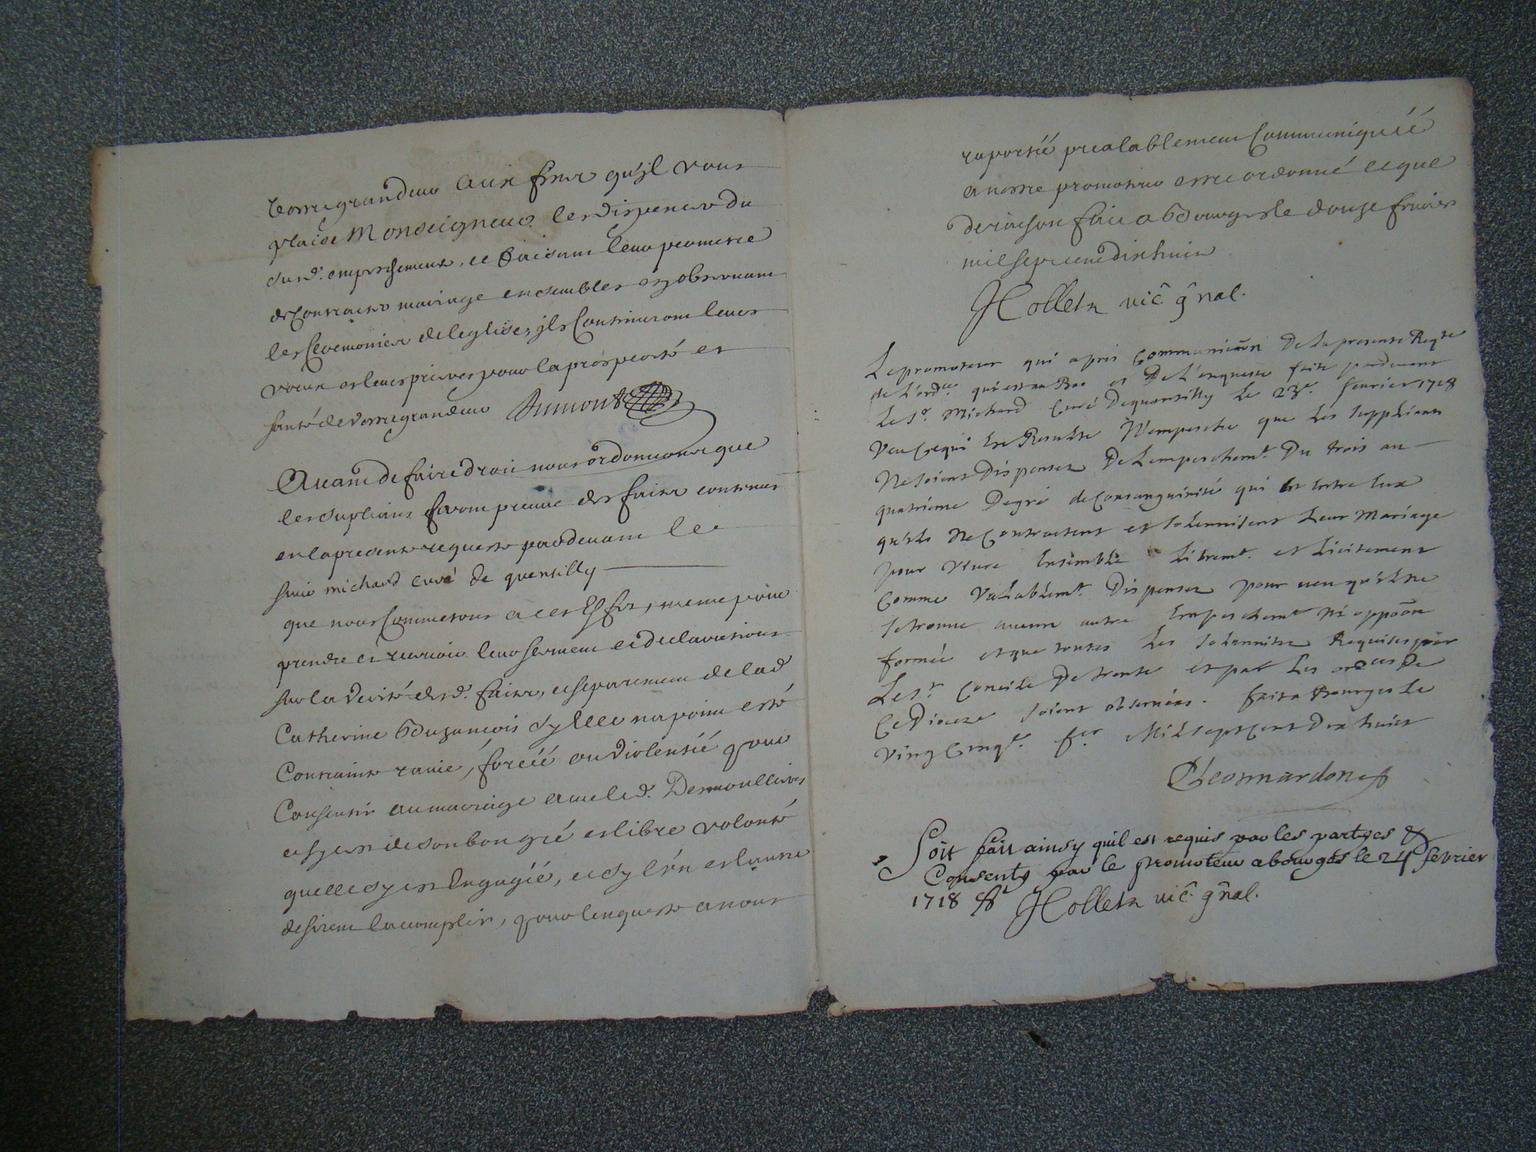 votre grandeur aux fins qu'jl vous
plaise Monseigneur les dispenser du
susd. empeschement, et faisant leur promettre
de Contracter mariage ensembles en observant
les Ceremonies de leglise, jls Continuront leurs
voeux et leurs prieres pour la prosperité et
santé de votre grandeur Dumont
Avant de faire droit nous ordonnons que
les supliants feront preuve des faits contenus
en la presente requeste pardevant le
sieur michard curé de quensilly
que nous Commetons a cet Effet, meme pour
prendre et recevoir leur serment et declarations
sur la verité desd. faits, et separement de lad
Catherine Bouzancois sy Elle na point esté
Contrainte ravie, forcéé ou violentéé pour
Consentir au mariage avec led. Desmoulins
et sy cest de son bon gré et libre volonté
quelle sy est Engagéé, et sy l'un et lautre
desirent lacomplir, pour lenqueste a nous
raportéé prealablement Communiquéé
a nostre promoteur estre ordonné ce que
de raison fait a Bourges le douze fevrier
mil sept cent dix huit
Holletn vic gñal.
Le promoteur qui apris Communicaõn de la presente Reqte
de L'ordce qui est au Bas et De L'enqueste faite pardevant
Le Sr. Michard Curé De quensilly Le 23e. fevrier 1718
Veu Ce qui En Resulte N'empesche que Les supplians
Ne soient Dispensez De Lempeschemt. Du trois au
quatriéme Degré de Consanguinité qui est Entre Eux
qu'ils Ne Contractent et solennisent Leur Mariage
pour vivre Ensemble Libremt. et Licitement
Comme Valablemt. Dispensez pour veu qu'il ne
se trouve aucun autre Empeschemt Ni oppõon
formée et que toutes Les solennitez Requises par
Le St. Concile De trente et par Les ordces De
Ce Dioceze soient observées. fait a Bourges Le
Vingt Cinqe. fer Mil sept cent Dix huict
Leonnardon
Soit fait ainsy quil est requis par les partyes &
Consenty par le promoteur a bourges le 25 fevrier
1718 Holletn vic gñal.